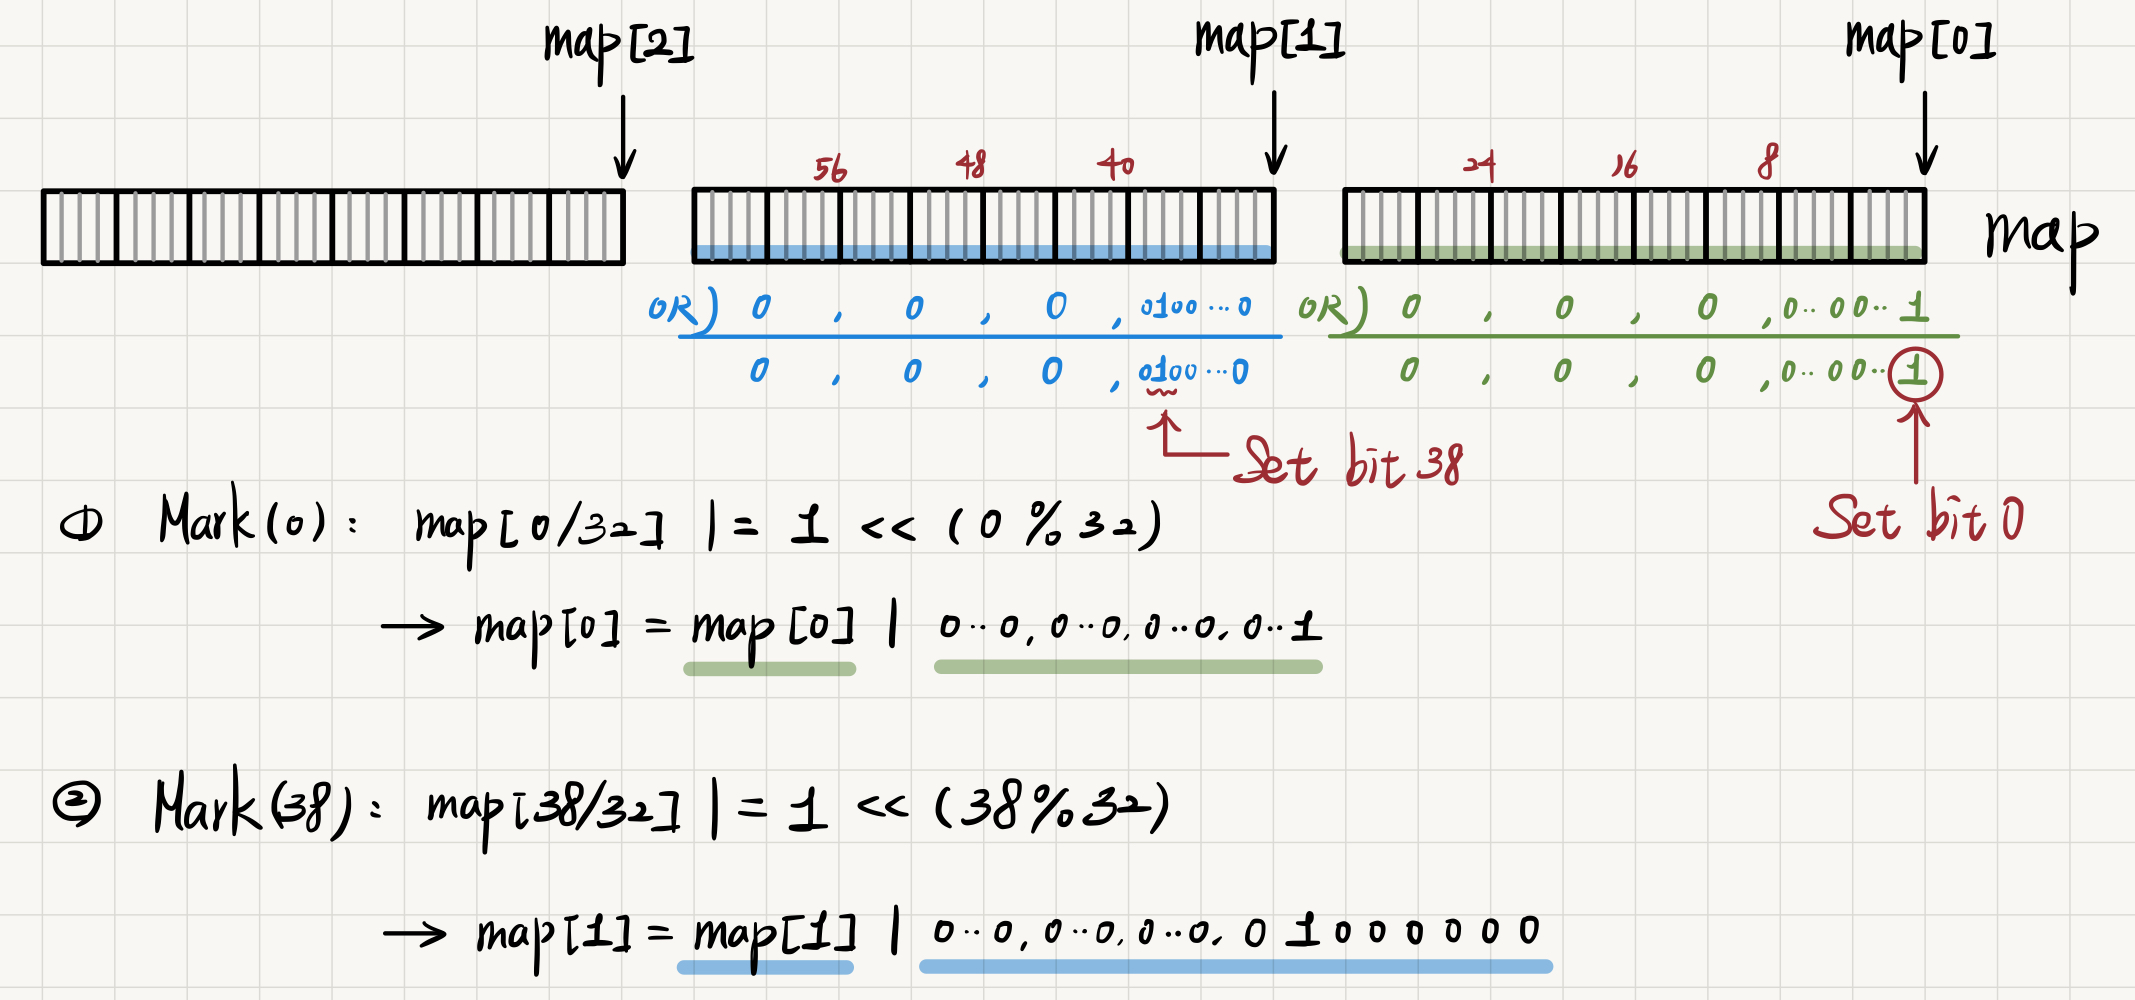 map[2] map[1] map[0]
56 48 40 24 16 8
map
OR) 0 , 0 , 0 , 0100···0 OR) 0 , 0 , 0 , 0··00··1
0 , 0 , 0 , 0100···0 0 , 0 , 0 , 0··00··1
Set bit 38
Set bit 0
① Mark(0): map[0/32] |= 1 << (0 % 32)
→ map[0] = map[0] | 0··0, 0··0, 0··0, 0··1
② Mark(38): map[38/32] |= 1 << (38%32)
→ map[1] = map[1] | 0··0, 0··0, 0··0, 01000000